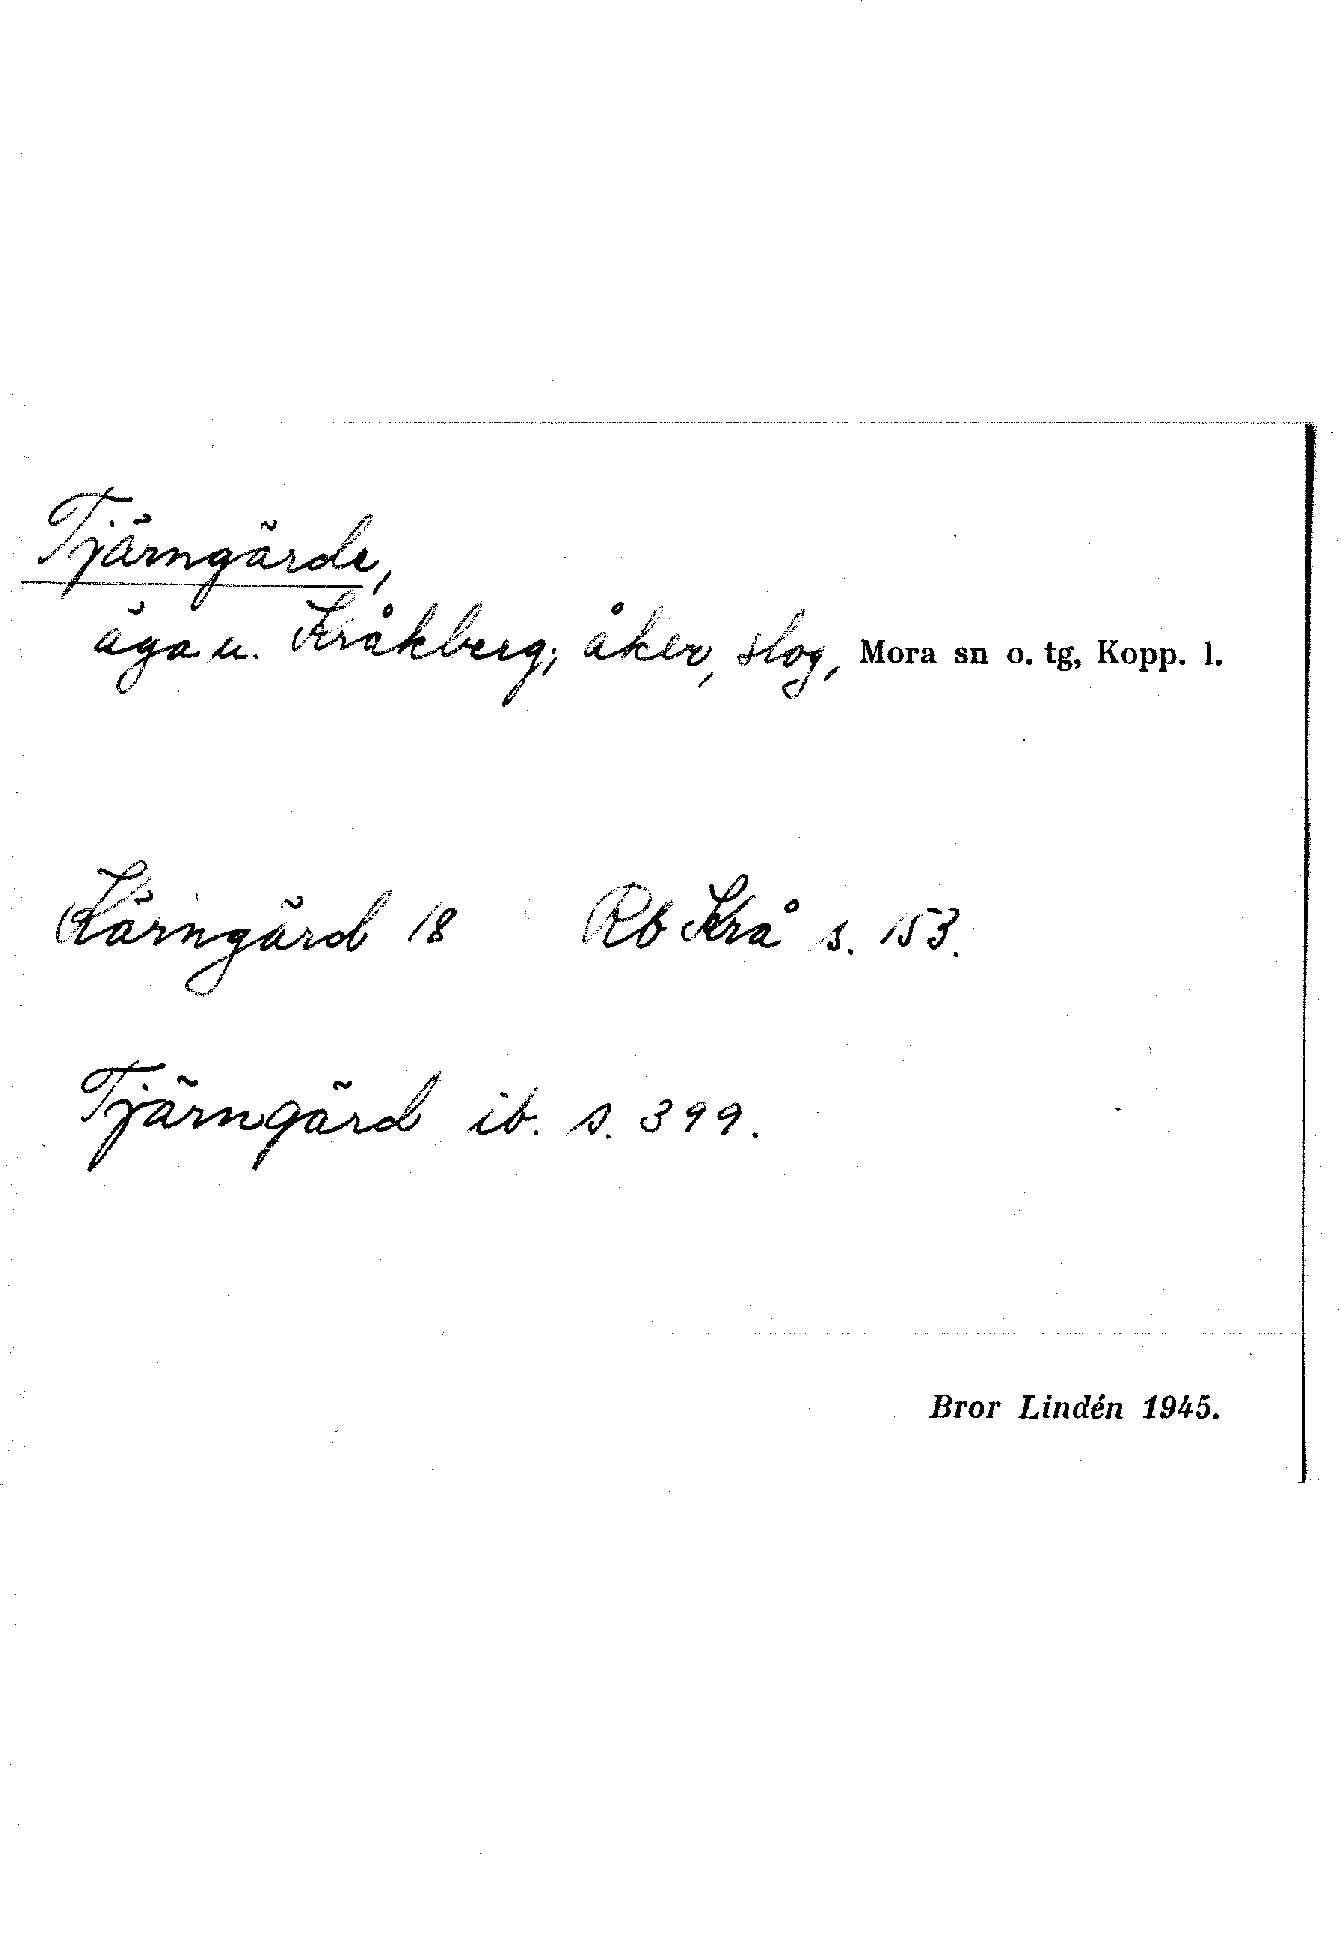 Tjärngärde,
äga u. Kråkberg; åker, slog, Mora sn o. tg, Kopp. l.
Kärngärd 18 Rb Krå s. 153.
Tjärngärd ib. s. 399.
Bror Lindén 1945.